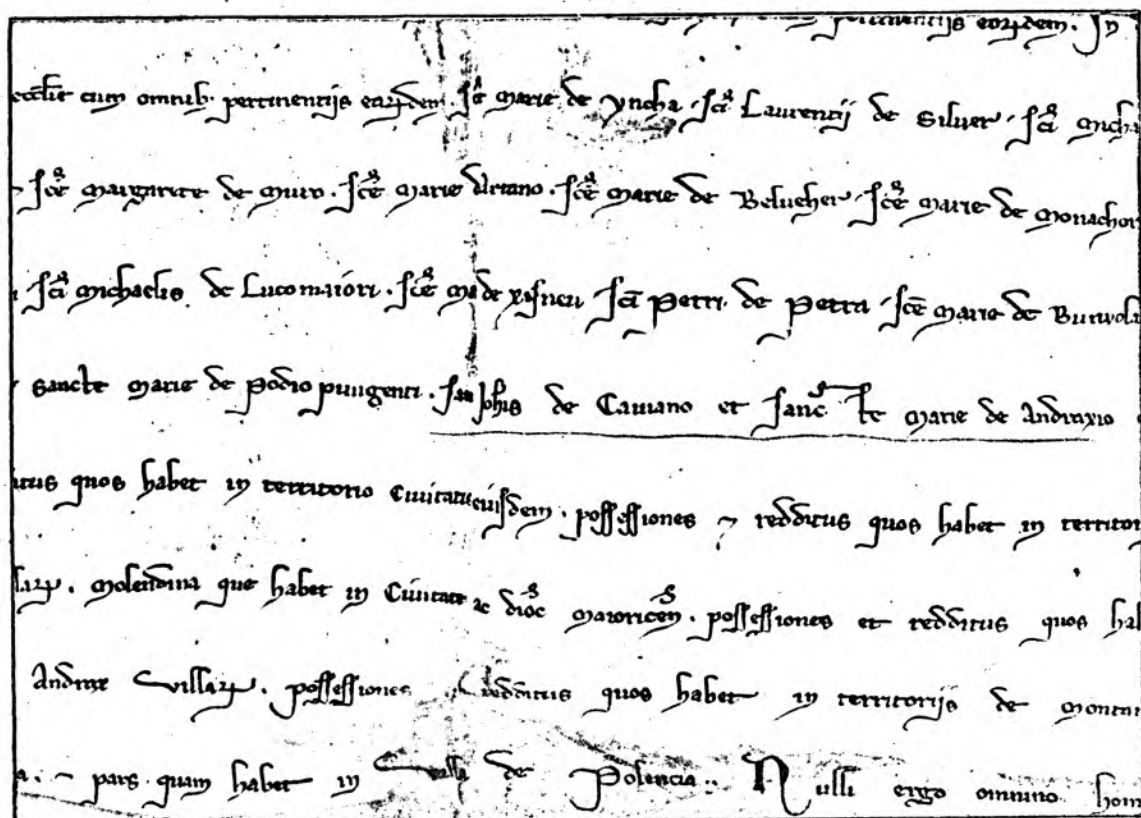 pertinentijs eorūdem. In
eccl̄ie cum omnib; pertinentijs earūdem. sc̄e marie de yncha. sc̄i Laurencij de Siluer. sc̄i micha
⁊ sc̄e margarete de muro. sc̄e marie dirtano. sc̄e marie de Belueher. sc̄e marie de monachor
sc̄i michaelis de Lucomaiori. sc̄e m̄ de xisneu sc̄i Petri de Petra. sc̄e marie de
sancte marie de Podio pungenti. Joh̄is de Cauiano et sanc te marie de Andraxio
quos habet in territorio Ciuitatis eiusdem. possessiones ⁊ redditus quos habet in territor
molendina que habet in Ciuitate ac dioc̄ maioricen̄. possessiones et redditus quos hab
villarū. possessiones redditus quos habet in territorijs de
⁊ pars quam habet in villa de Polencia. Nulli ergo omnino hom